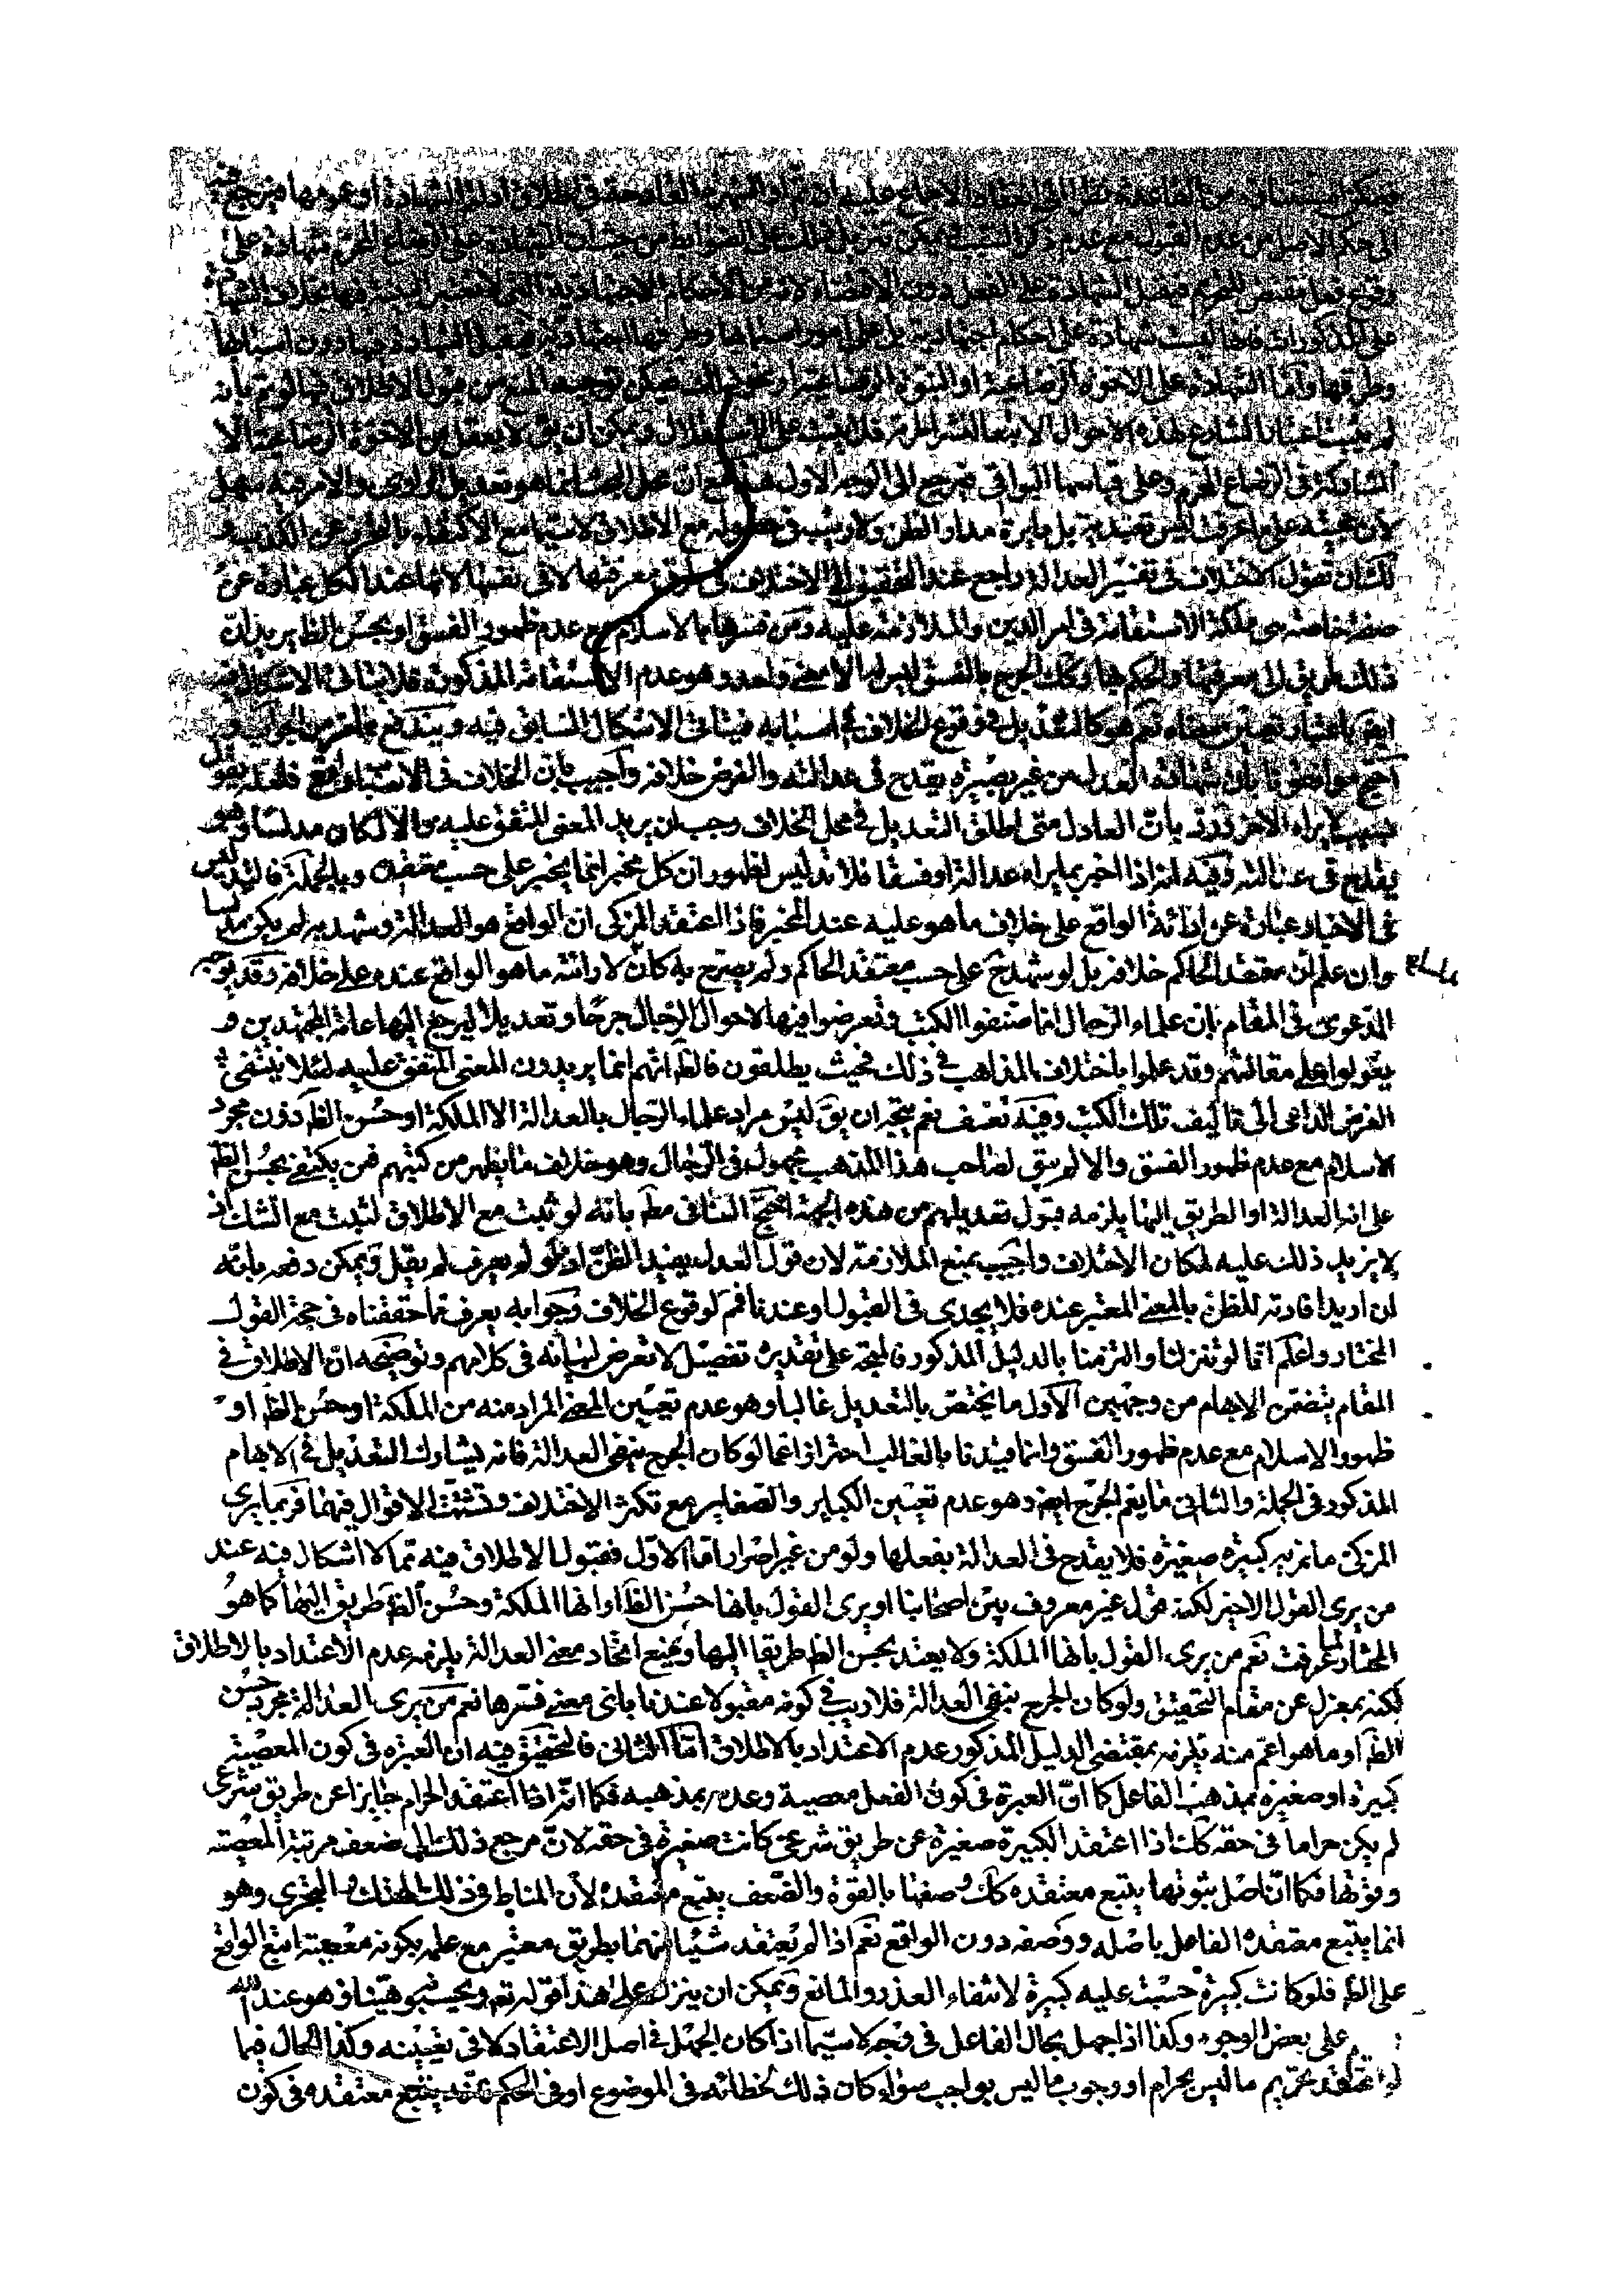 فيمكن استثناؤه من القاعدة نظرا الى انعقاد الاجماع عليه ان تم او الشهرة القادحة في اطلاق ادلة الشهادة او عمومها فيرجع فيه
الى حكم الاصل من عدم القبول مع عدم ذكر السبب ويمكن تنزيل ذلك على الضوابط من حيث ان الشهادة على الرضاع المحرم شهادة على
وقوع فعل مقتض للتحريم فيقبل الشهادة على الفعل دون الاقتضاء لانه من الاحكام الاجتهادية التي لا تعتبر البينة فيها بخلاف الشهادة
على المذكورات فانها ليست شهادة على احكام اجتهادية بل على امور اسبابها وطرقها اجتهادية فيقبل الشهادة فيها دون اسبابها
وطرقها واما الشهادة على الاخوة الرضاعية او البنوة الرضاعية او نحو ذلك فيمكن توجيه المنع من قبول الاطلاق فيها لو تم بأنه
لم يثبت اعتبار الشارع لهذه الاحوال الا تبعا لنشر الحرمة فلا يثبت على الاستقلال ويمكن ان يق لا يعقل من الاخوة الرضاعية الا
المشاركة في الرضاع المحرم وعلى قياسها البواقي فيرجع الى الوجه الاول هذا مع ان محل البحث انما هو تعديل الراوي والامر فيه سهل
لأن حجيته على ما عرفت ليس تعبدية بل دايرة مدار الظن ولا ريب في حصوله مع الاطلاق لا سيما مع الاكتفاء بالتحرز عن الكذب و
لك ان تقول الاختلاف في تفسير العدالة راجع عند التحقيق الى الاختلاف في طريق معرفتها لا في نفسها لانها عند الكل عبارة عن
صفة خاصة هي ملكة الاستقامة في امر الدين والملازمة عليه ومن فسرها بالاسلام مع عدم ظهور الفسق او بحسن الظاهر يريد ان
ذلك طريق الى معرفتها والحكم بها وكك الجرح بالفسق ليس له الا معنى واحد وهو عدم الاستقامة المذكورة فلا يتاتى الاشكال فيه
ايض باعتبار تعيين معناه نعم هو كالتعديل في وقوع الخلاف في اسبابه فيتاتى الاشكال السابق فيه ويندفع بما مر من الجواب و
احتج موافقونا بان شهادة العدل من غير بصيرة يقدح في عدالته والفرض خلافه واجيب بأن الخلاف في الاسباب واقع فلعله يقول
بسبب لا يراه الاخر وردّ بأن العادل متى اطلق التعديل في محل الخلاف وجب ان يريد المعنى المتفق عليه والا لكان مدلسا وهو
يقدح في عدالته وفيه انه اذا اخبر بما يراه عدالة او فسقا فلا تدليس لظهور ان كل مخبر انما يخبر على حسب معتقده وبالجملة فالتدليس
في الاخبار عبارة عن اراءة الواقع على خلاف ما هو عليه عند المخبر فاذا اعتقد المزكى ان الواقع هو العدالة وشهد به لم يكن مدلسا
وان علم ان معتقد الحاكم خلافه بل لو شهد ح على حسب معتقد الحاكم ولم يصرح به كان لارائته ما هو الواقع عنده على خلافه وقد يوجه
الدعوى في المقام بان علماء الرجال انما صنفوا الكتب وتعرضوا فيها لاحوال الرجال جرحا وتعديلا ليرجع اليها عامة المجتهدين و
يعولوا على مقالتهم وقد علموا باختلاف المذاهب في ذلك فحيث يطلقون فالظ انهم انما يريدون المعنى المتفق عليه لئلا ينتفي
الغرض الداعي الى تاليف تلك الكتب وفيه تعسف نعم يتجه ان يق ليس مراد علماء الرجال بالعدالة الا الملكة او حسن الظ دون مجرد
الاسلام مع عدم ظهور الفسق والا لم يبق لصاحب هذا المذهب مجهول في الرجال وهو خلاف ما يظهر من كتبهم فمن يكتفي بحسن الظ
على انه العدالة او الطريق اليها يلزمه قبول تعديلهم من هذه الجهة احتج الثاني مط بانه لو ثبت مع الاطلاق لثبت مع الشك اذ
لا يزيد ذلك عليه لمكان الاختلاف واجيب بمنع الملازمة لان قول العدل يفيد الظن اذ لو لم يعرف لم يقبل ويمكن دفعه بانه
ان اريد افادته للظن بالمعنى المعتبر عنده فلا يجدى في القبول او عندنا فمم لوقوع الخلاف وجوابه يعرف مما حققناه في حجة القول
المختار واعلم انا لو تنزلنا والتزمنا بالدليل المذكور فليتجه على تقديره تفصيل لا تعرض لبيانه في كلامهم وتوضيحه ان الاطلاق في
المقام يتضمن الابهام من وجهين الاول ما يختص بالتعديل غالبا وهو عدم تعيين المعنى المراد منه من الملكة او حسن الظ او
ظهور الاسلام مع عدم ظهور الفسق وانما قيدنا بالغالب احترازا عما لو كان الجرح بنفي العدالة فانه يشارك التعديل في الابهام
المذكور في الجملة والثاني ما يعم الجرح ايض وهو عدم تعيين الكباير والصغاير مع تكثر الاختلاف وتشتت الاقوال فيهما فربما يرى
المزكى ما نريه كبيرة صغيرة فلا يقدح في العدالة بفعلها ولو من غير اصرار اما الاول فقبول الاطلاق فيه مما لا اشكال فيه عند
من يرى القول الاخير لكنه قول غير معروف بين اصحابنا او يرى القول بانها حسن الظ او انها الملكة وحسن الظ طريق اليها كما هو
المختار لما عرفت نعم من يرى القول بانها الملكة ولا يعتد بحسن الظ طريقا اليها ويمنع اتحاد معنى العدالة يلزمه عدم الاعتداد بالاطلاق
لكنه بمعزل عن مقام التحقيق ولو كان الجرح بنفي العدالة فلا ريب في كونه مقبولا عندنا باى معنى فسرها نعم من يرى العدالة مجرد حسن
الظ او ما هو اعم منه يلزمه بمقتضى الدليل المذكور عدم الاعتداد بالاطلاق اما الثاني فالتحقيق فيه ان العبرة في كون المعصية
كبيرة او صغيرة بمذهب الفاعل كما ان العبرة في كون الفعل معصية وعدمه بمذهبه فكما انه اذا اعتقد الحرام جايزا عن طريق شرعي
لم يكن حراما في حقه كك اذا اعتقد الكبيرة صغيرة عن طريق شرعي كانت صغيرة في حقه لان مرجع ذلك الى ضعف مرتبة المعصية
وقوتها فكما ان اصل ثبوتها يتبع معتقده كك صفتها بالقوة والضعف يتبع معتقده لأن المناط في ذلك الهتك والتجرى وهو
انما يتبع معتقده الفاعل باصله ووصفه دون الواقع نعم اذا لم يعتقد شيئا منهما بطريق معتبر مع علمه بكونه معصية اتبع الواقع
على الظ فلو كانت كبيرة حسبت عليه كبيرة لانتفاء العذر والمانع ويمكن ان ينزل على هذا قوله تع وتحسبونه هينا وهو عند الله
على بعض الوجوه وكذا اذا جهل بحال الفاعل في وجه لا سيما اذا كان الجهل في اصل الاعتقاد لا في تعيينه وكذا الحال فيما
لو اعتقد تحريم ما ليس بحرام او وجوب ما ليس بواجب سواء كان ذلك لخطائه في الموضوع او في الحكم يتبع معتقده في كون